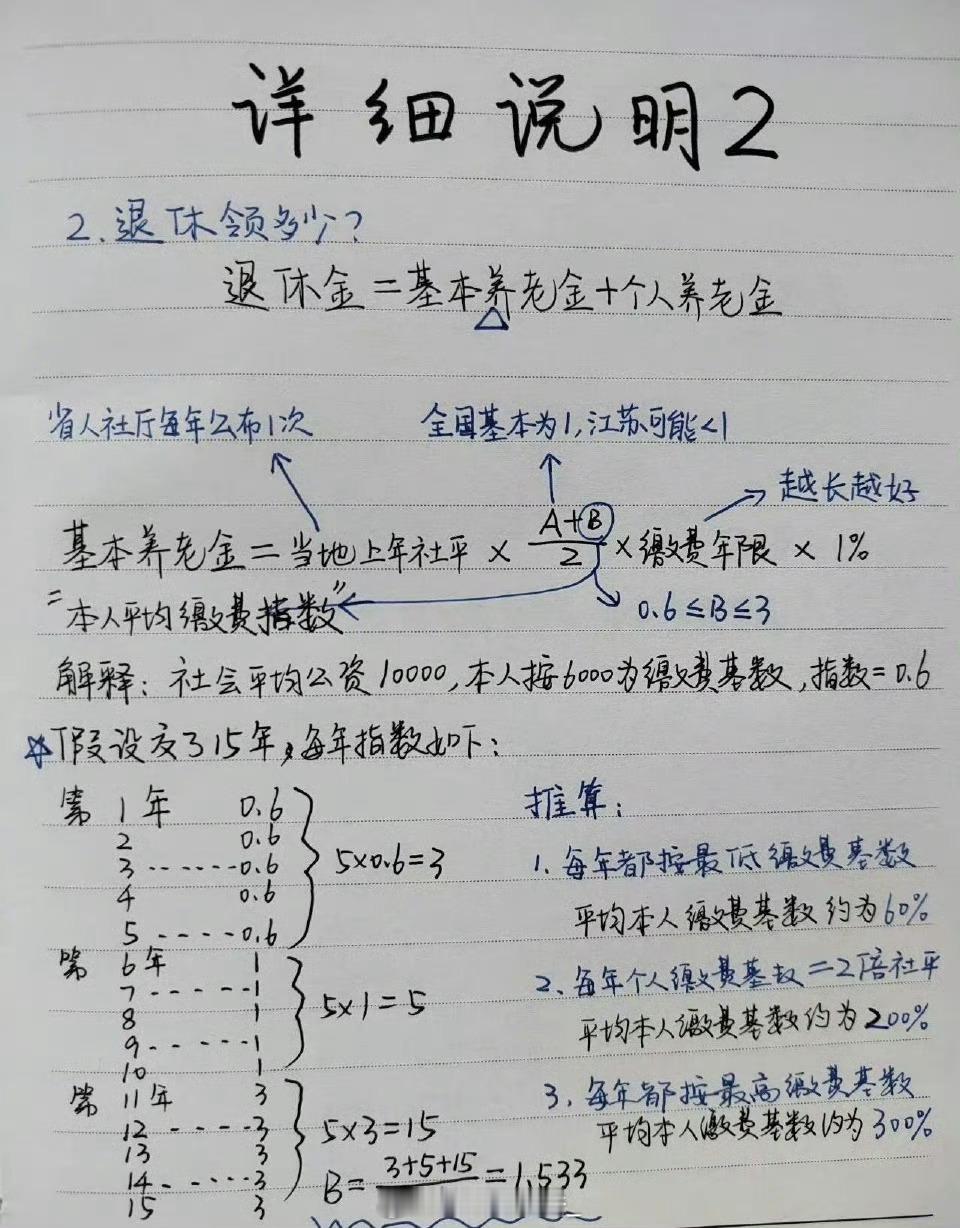 详细说明2
2.退休领多少?
退休金=基本养老金+个人养老金
省人社厅每年公布1次
全国基本为1,江苏可能<1
越长越好
基本养老金=当地上年社平×(A+B)/2×缴费年限×1%
="本人平均缴费指数"
0.6≤B≤3
解释:社会平均公资10000,本人按6000为缴费基数,指数=0.6
☆假设交了15年,每年指数如下:
第1年 0.6
2 0.6
3------0.6
4 0.6
5-----0.6
5×0.6=3
第6年 1
7-----1
8 1
9-----1
10 1
5×1=5
第11年 3
12-----3
13 3
14-----3
15 3
5×3=15
B=3+5+15/ =1.533
推算:
1.每年都按最低缴费基数
平均本人缴费基数约为60%
2.每年个人缴费基数=2倍社平
平均本人缴费基数约为200%
3.每年都按最高缴费基数
平均本人缴费基数约为300%